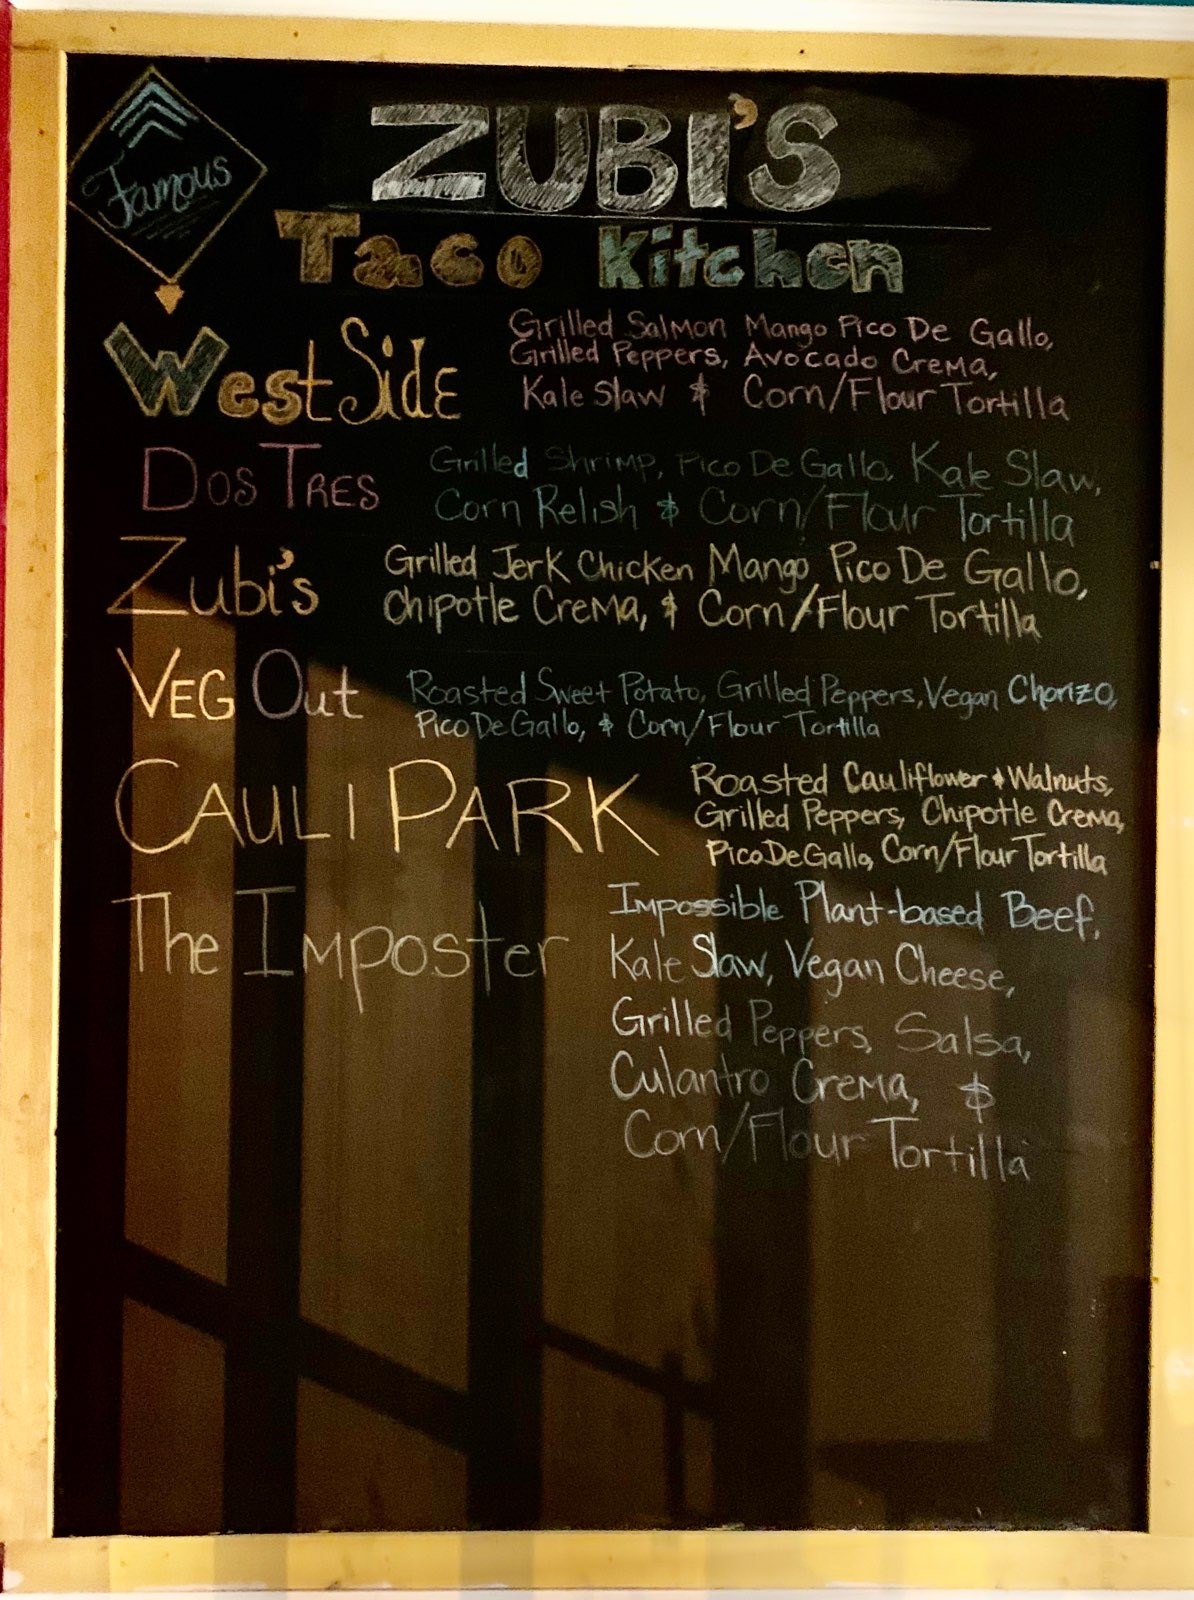 Famous
ZUBI'S
Taco Kitchen
West Side
Grilled Salmon Mango Pico De Gallo,
Grilled Peppers, Avocado Crema,
Kale Slaw & Corn/Flour Tortilla
Dos Tres
Grilled Shrimp, Pico De Gallo, Kale Slaw,
Corn Relish & Corn/Flour Tortilla
Zubi's
Grilled Jerk Chicken Mango Pico De Gallo,
Chipotle Crema, & Corn/Flour Tortilla
Veg Out
Roasted Sweet Potato, Grilled Peppers, Vegan Chorizo,
Pico De Gallo, & Corn/Flour Tortilla
CAULI PARK
Roasted Cauliflower & Walnuts,
Grilled Peppers, Chipotle Crema,
Pico De Gallo, Corn/Flour Tortilla
The Imposter
Impossible Plant-based Beef,
Kale Slaw, Vegan Cheese,
Grilled Peppers, Salsa,
Culantro Crema, &
Corn/Flour Tortilla